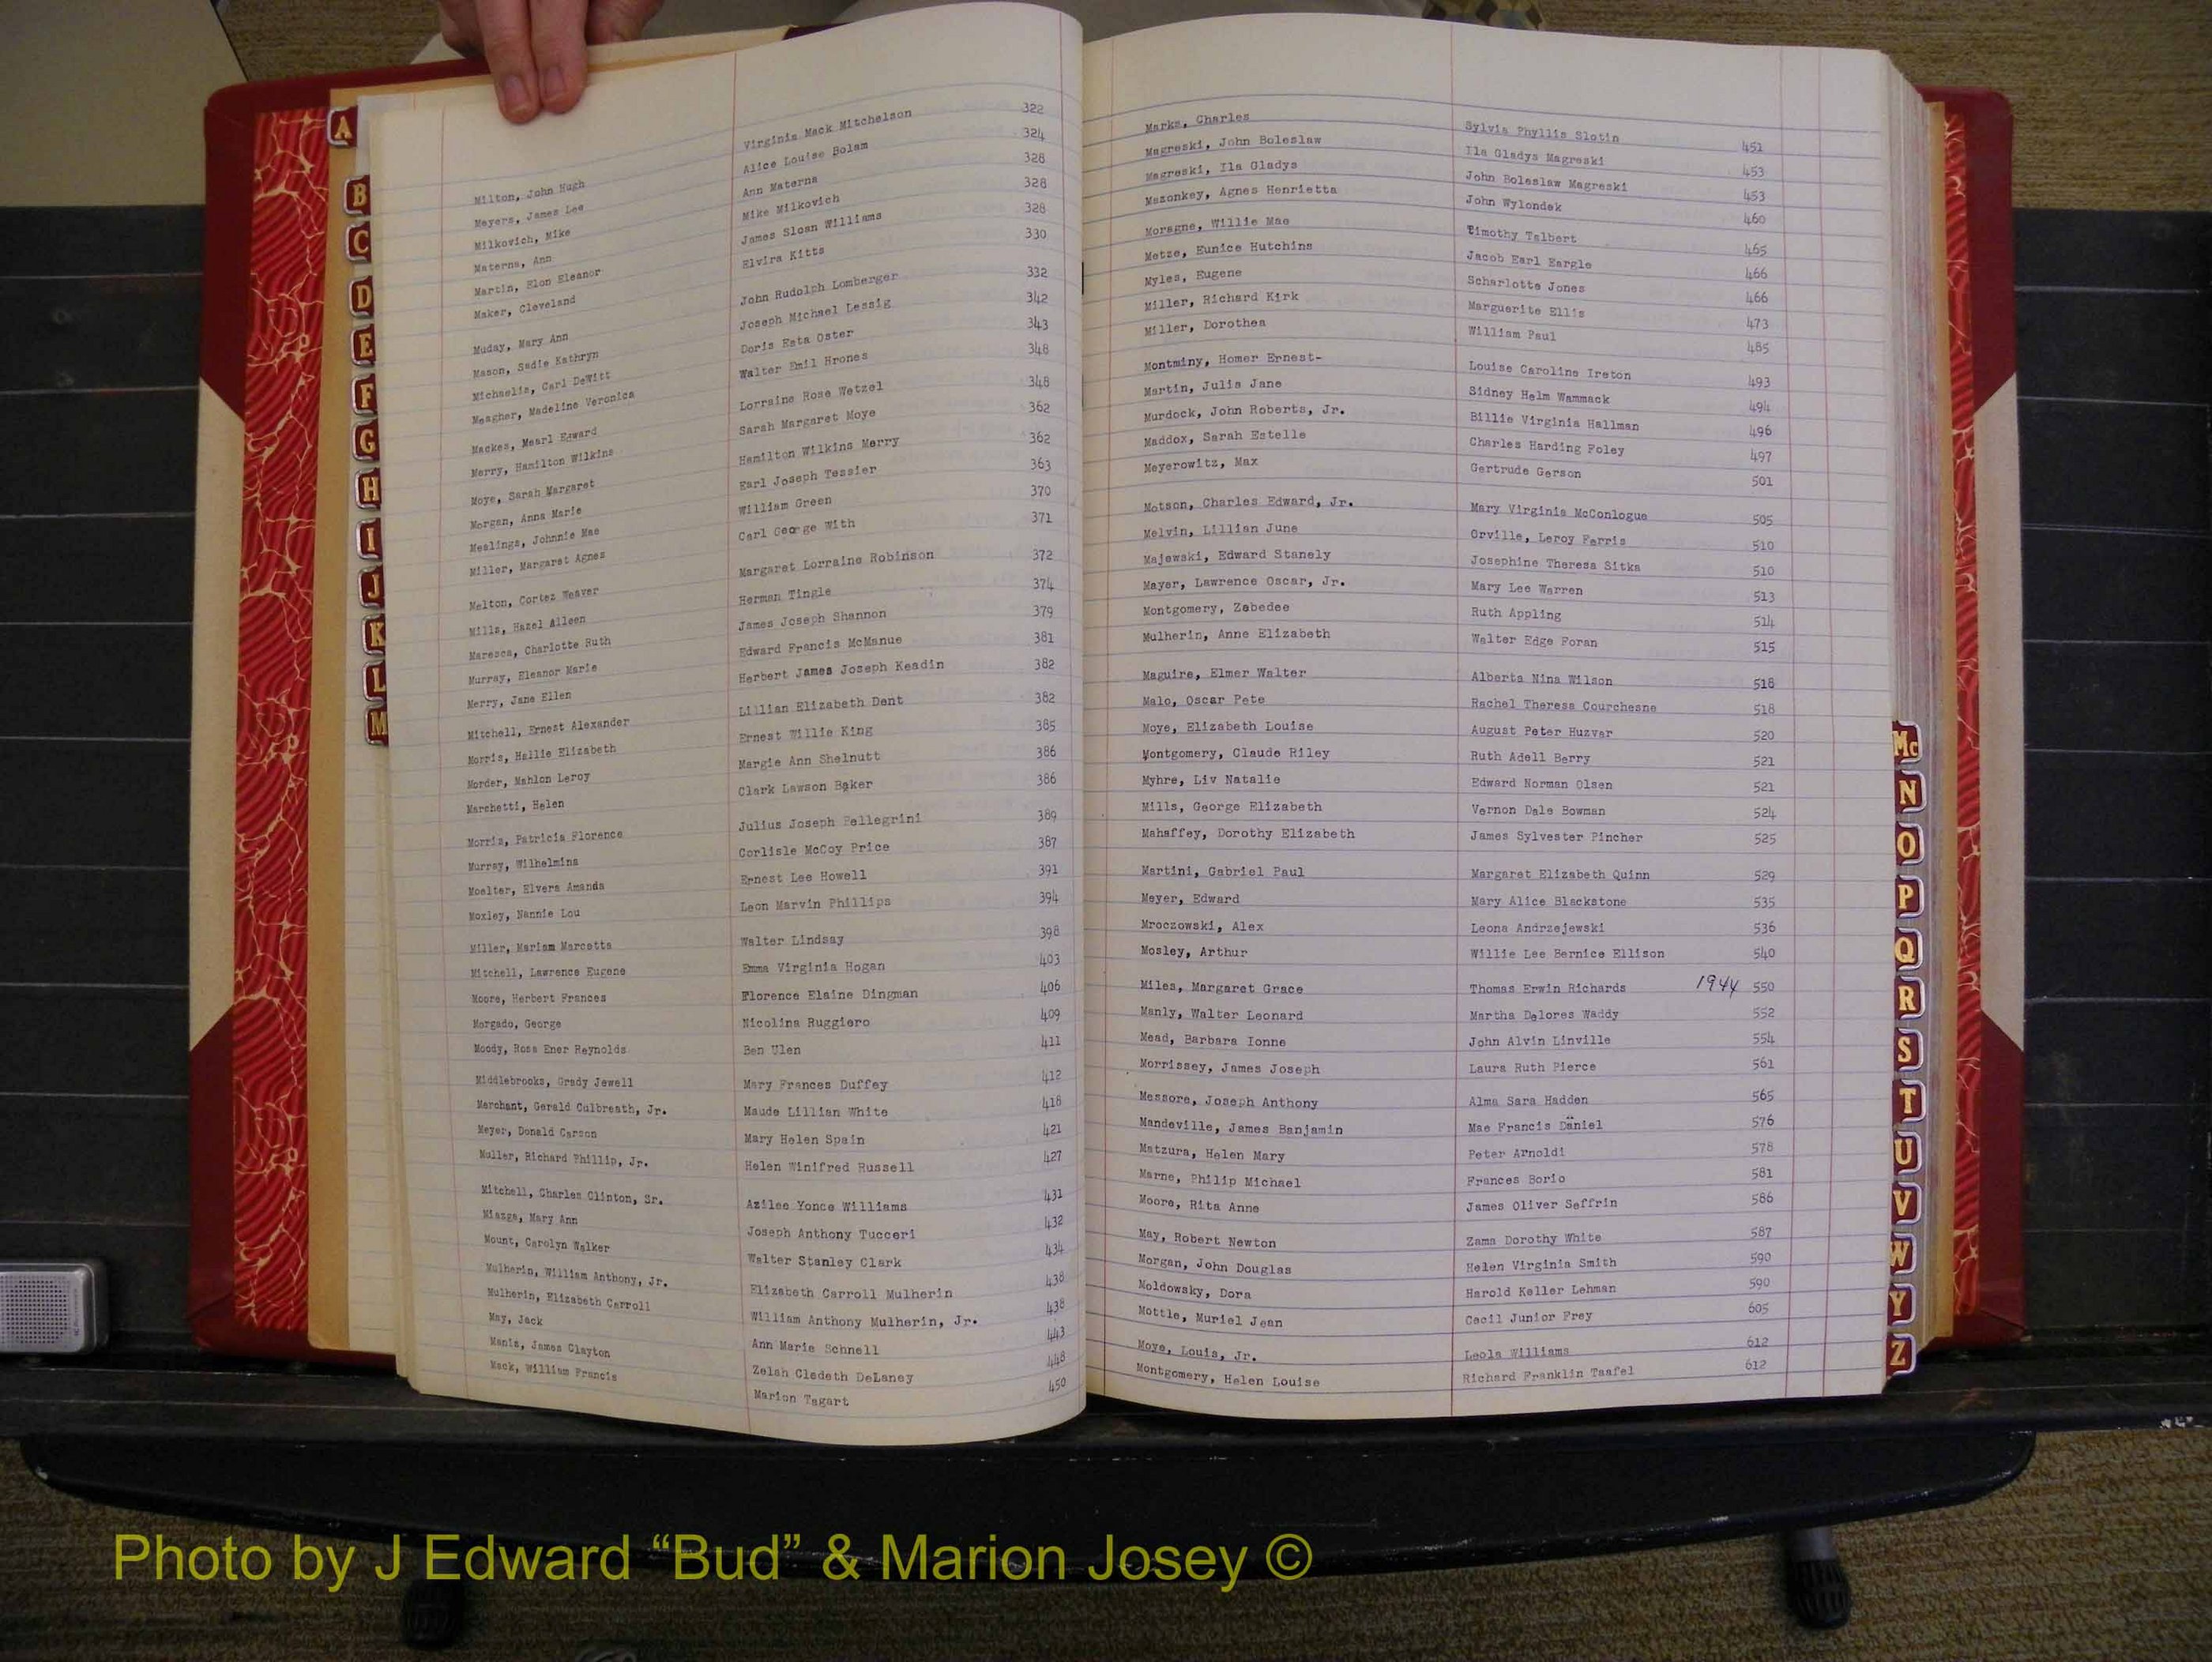 A
B
C
D
E
F
G
H
I
J
K
L
M
Milton, John Hugh Virginia Mack Mitchelson 322
Meyers, James Lee Alice Louise Bolam 324
Milkovich, Mike Ann Materna 328
Materna, Ann Mike Milkovich 328
Martin, Elon Eleanor James Sloan Williams 328
Maker, Cleveland Elvira Kitts 330
Muday, Mary Ann John Rudolph Lomberger 332
Mason, Sadie Kathryn Joseph Michael Lessig 342
Michaelis, Carl DeWitt Doris Esta Oster 343
Meagher, Madeline Veronica Walter Emil Hrones 348
Mackes, Mearl Edward Lorraine Rose Wetzel 348
Merry, Hamilton Wilkins Sarah Margaret Moye 362
Moye, Sarah Margaret Hamilton Wilkins Merry 362
Morgan, Anna Marie Earl Joseph Tessier 363
Mealings, Johnnie Mae William Green 370
Miller, Margaret Agnes Carl George With 371
Melton, Cortez Weaver Margaret Lorraine Robinson 372
Mills, Hazel Aileen Herman Tingle 374
Maresca, Charlotte Ruth James Joseph Shannon 379
Murray, Eleanor Marie Edward Francis McManue 381
Merry, Jane Ellen Herbert James Joseph Keadin 382
Mitchell, Ernest Alexander Lillian Elizabeth Dent 382
Morris, Hallie Elizabeth Ernest Willie King 385
Morder, Mahlon Leroy Margie Ann Shelnutt 386
Marchetti, Helen Clark Lawson Baker 386
Morris, Patricia Florence Julius Joseph Pellegrini 389
Murray, Wilhelmina Corlisle McCoy Price 387
Moelter, Elvera Amanda Ernest Lee Howell 391
Moxley, Nannie Lou Leon Marvin Phillips 394
Miller, Mariam Marcetta Walter Lindsay 398
Mitchell, Lawrence Eugene Emma Virginia Hogan 403
Moore, Herbert Frances Florence Elaine Dingman 406
Morgado, George Nicolina Ruggiero 409
Moody, Rosa Ener Reynolds Ben Ulen 411
Middlebrooks, Grady Jewell Mary Frances Duffey 412
Marchant, Gerald Culbreath, Jr. Maude Lillian White 418
Meyer, Donald Carson Mary Helen Spain 421
Muller, Richard Phillip, Jr. Helen Winifred Russell 427
Mitchell, Charles Clinton, Sr. Azilee Yonce Williams 431
Miazga, Mary Ann Joseph Anthony Tucceri 432
Mount, Carolyn Walker Walter Stanley Clark 434
Mulherin, William Anthony, Jr. Elizabeth Carroll Mulherin 438
Mulherin, Elizabeth Carroll William Anthony Mulherin, Jr. 438
May, Jack Ann Marie Schnell 443
Manis, James Clayton Zelah Cledeth DeLaney 448
Mack, William Francis Marion Tagart 450
Marks, Charles Sylvia Phyllis Slotin 451
Magreski, John Boleslaw Ila Gladys Magreski 453
Magreski, Ila Gladys John Boleslaw Magreski 453
Mazonkey, Agnes Henrietta John Wylondek 460
Moragne, Willie Mae Timothy Talbert 465
Metze, Eunice Hutchins Jacob Earl Eargle 466
Myles, Eugene Scharlotte Jones 466
Miller, Richard Kirk Marguerite Ellis 473
Miller, Dorothea William Paul 485
Montminy, Homer Ernest- Louise Caroline Ireton 493
Martin, Julia Jane Sidney Helm Wammack 494
Murdock, John Roberts, Jr. Billie Virginia Hallman 496
Maddox, Sarah Estelle Charles Harding Foley 497
Meyerowitz, Max Gertrude Gerson 501
Motson, Charles Edward, Jr. Mary Virginia McConlogue 505
Melvin, Lillian June Orville, Leroy Farris 510
Majewski, Edward Stanely Josephine Theresa Sitka 510
Mayer, Lawrence Oscar, Jr. Mary Lee Warren 513
Montgomery, Zebedee Ruth Appling 514
Mulherin, Anne Elizabeth Walter Edge Foran 515
Maguire, Elmer Walter Alberta Nina Wilson 518
Malo, Oscar Pete Rachel Theresa Courchesne 518
Moye, Elizabeth Louise August Peter Huzvar 520
Montgomery, Claude Riley Ruth Adell Berry 521
Myhre, Liv Natalie Edward Norman Olsen 521
Mills, George Elizabeth Vernon Dale Bowman 524
Mahaffey, Dorothy Elizabeth James Sylvester Pincher 525
Martini, Gabriel Paul Margaret Elizabeth Quinn 529
Meyer, Edward Mary Alice Blackstone 535
Mroczowski, Alex Leona Andrzejewski 536
Mosley, Arthur Willie Lee Bernice Ellison 540
Miles, Margaret Grace Thomas Erwin Richards 1944 550
Manly, Walter Leonard Martha Delores Waddy 552
Mead, Barbara Ionne John Alvin Linville 554
Morrissey, James Joseph Laura Ruth Pierce 561
Messore, Joseph Anthony Alma Sara Hadden 565
Mandeville, James Banjamin Mae Francis Daniel 576
Matzura, Helen Mary Peter Arnoldi 578
Marne, Philip Michael Frances Borio 581
Moore, Rita Anne James Oliver Seffrin 586
May, Robert Newton Zama Dorothy White 587
Morgan, John Douglas Helen Virginia Smith 590
Moldowsky, Dora Harold Keller Lehman 590
Mottle, Muriel Jean Cecil Junior Frey 605
Moye, Louis, Jr. Leola Williams 612
Montgomery, Helen Louise Richard Franklin Taafel 612
Mc
N
O
P
Q
R
S
T
U
V
W
Y
Z
Photo by J Edward “Bud” & Marion Josey ©